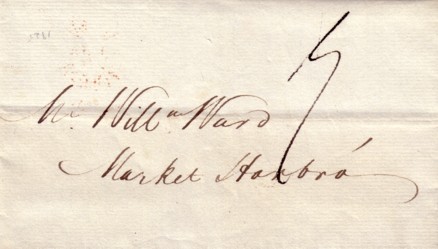 Mr. Willm Ward
Market Harbro'